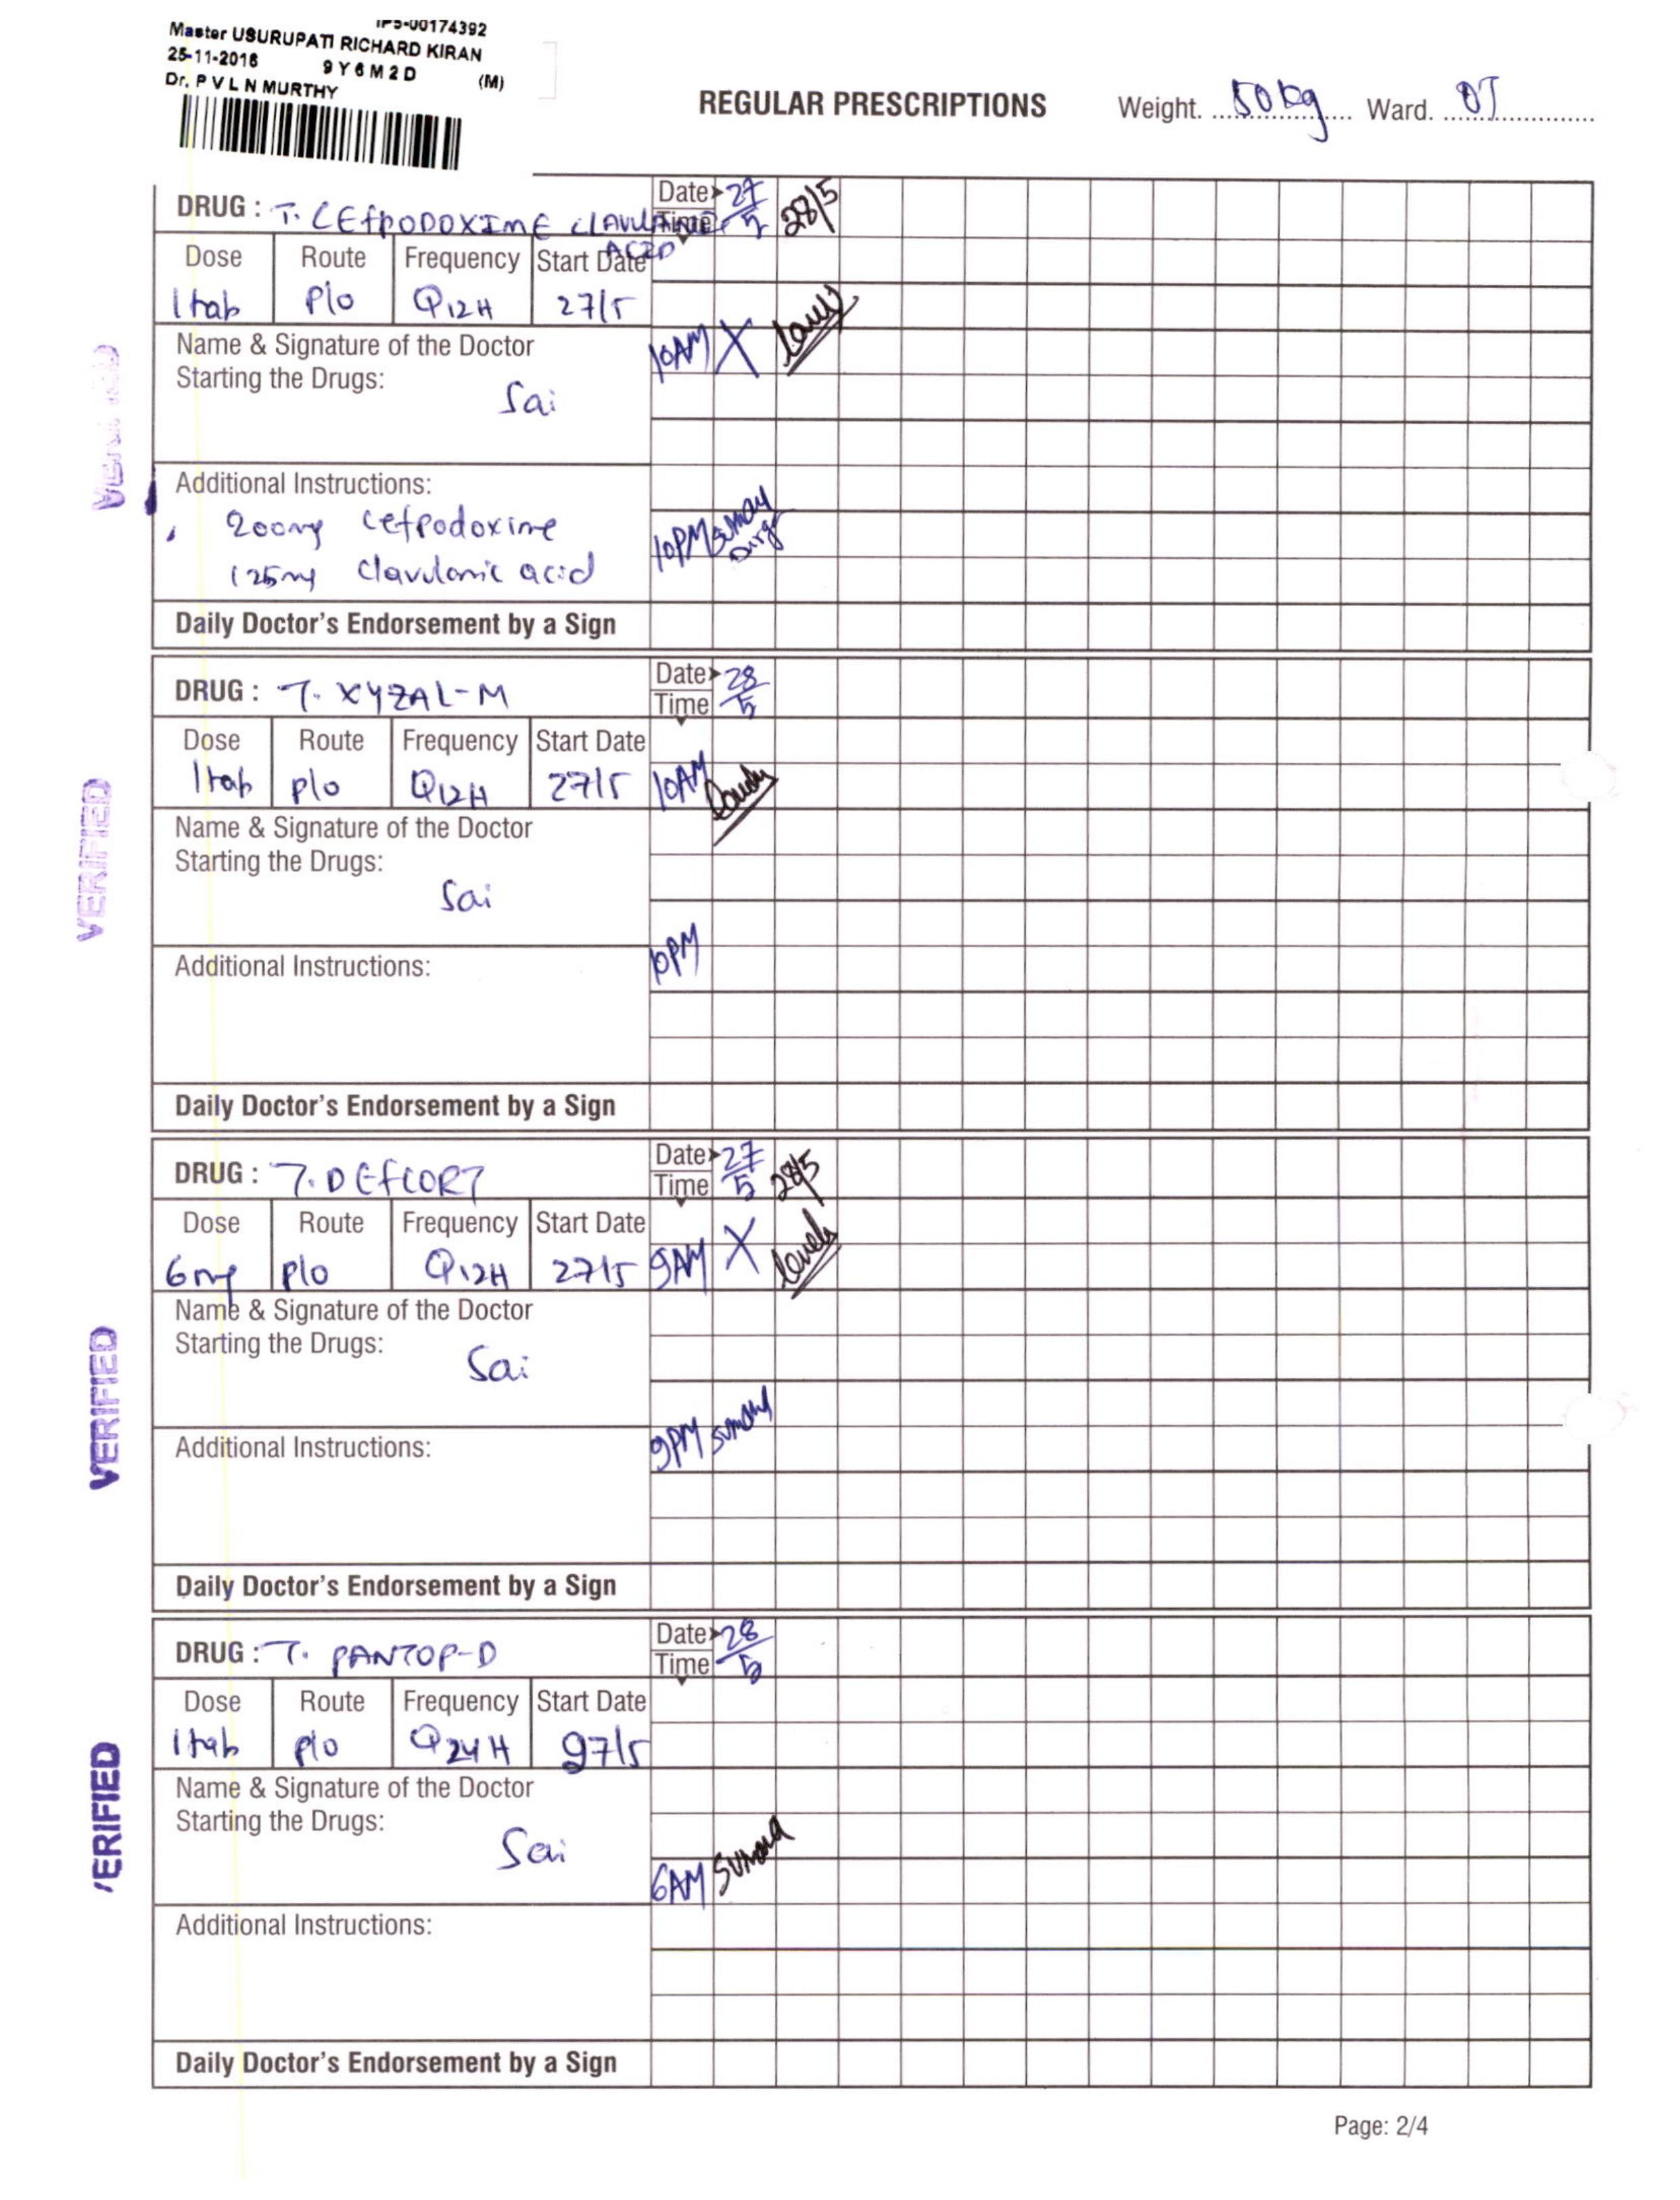 IPS-00174392
Master USURUPATI RICHARD KIRAN
25-11-2016 9Y6M2D (M)
Dr. P V L N MURTHY
REGULAR PRESCRIPTIONS Weight. 50 kg Ward. OT
DRUG : T. CEFPODOXIME CLAVULANIC ACID
Date 27/5 28/5
Time
Dose Route Frequency Start Date
1 tab P/o Q12H 27/5
Name & Signature of the Doctor
Starting the Drugs:
Sai
10AM X
Additional Instructions:
200mg Cefpodoxime
125mg Clavulanic acid
10PM
Daily Doctor's Endorsement by a Sign
DRUG : T. XYZAL-M
Date 28/5
Time
Dose Route Frequency Start Date
1 tab P/o Q12H 27/5 10AM
Name & Signature of the Doctor
Starting the Drugs:
Sai
Additional Instructions:
10PM
Daily Doctor's Endorsement by a Sign
VERIFIED
DRUG : T. DEFCORT
Date 27/5 28/5
Time
Dose Route Frequency Start Date
6mg P/o Q12H 27/5 9AM X
Name & Signature of the Doctor
Starting the Drugs:
Sai
Additional Instructions:
9PM
Daily Doctor's Endorsement by a Sign
VERIFIED
DRUG : T. PANTOP-D
Date 28/5
Time
Dose Route Frequency Start Date
1 tab P/o Q24H 27/5
Name & Signature of the Doctor
Starting the Drugs:
Sai
6AM
Additional Instructions:
Daily Doctor's Endorsement by a Sign
VERIFIED
Page: 2/4